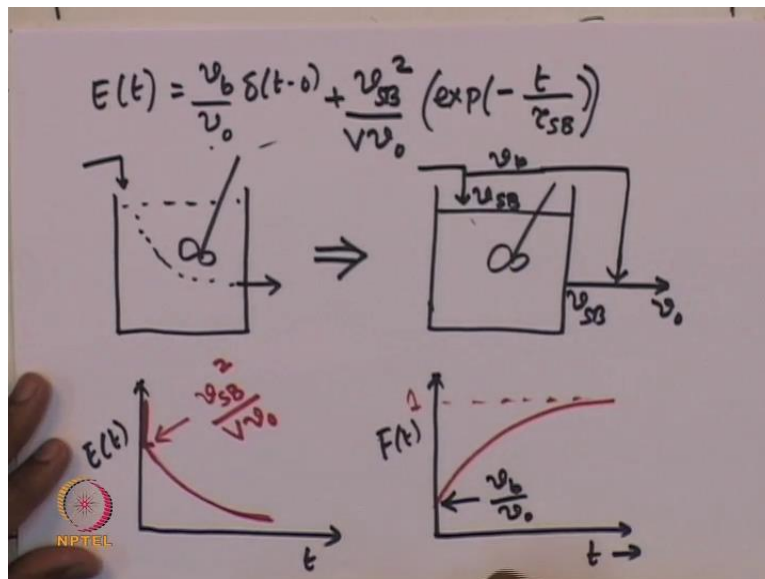 E(t) = v_b/v_0 δ(t-0) + v_SB²/Vv_0 (exp(-t/τ_SB))
v_b
v_SB
v_SB
v_0
v_SB²/Vv_0
E(t)
t
1
F(t)
v_b/v_0
t →
NPTEL